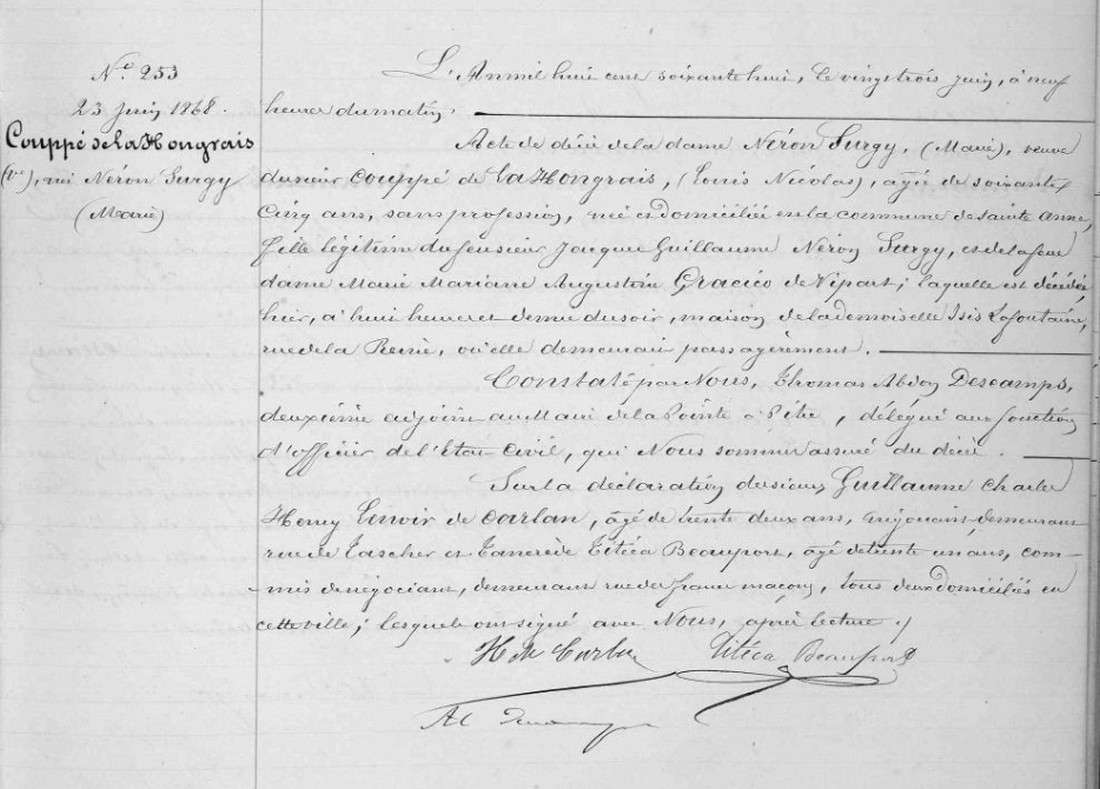 N.º 253
23 Juin 1868.
Couppé de la Hongrais
(Vᵉ), née Néron Surgy
(Marie)
L'An mil huit cent soixante huit, le vingt trois juin, à neuf
heures du matin.
Acte de décès de la dame Néron Surgy, (Marie), veuve
du sieur Couppé de la Hongrais, (Louis Nicolas), agée de soixante
cinq ans, sans profession, née et domiciliée en la commune de Sainte Anne,
fille légitime du feu sieur Jacques Guillaume Néron Surgy, et de la feue
dame Marie Mariane Augustine Gracieo de Vipart; laquelle est décédée
hier, à huit heures et demie du soir, maison de la demoiselle Isis Lafontaine,
rue de la Reine, où elle demeurait passagèrement.
Constaté par Nous, Thomas Abdon Descamps,
deuxième adjoint au Maire de la Pointe à Pitre, délégué aux fonctions
d'officier de l'Etat Civil, qui Nous sommes assuré du décès.
Sur la déclaration des sieurs Guillaume Charles
Henry Lenoir de Carlan, âgé de trente deux ans, négociant, demeurant
rue de Tascher et Tancrède Titéca Beauport, âgé de trente un ans, com-
mis de négociant, demeurant rue des francs maçons, tous deux domiciliés en
cette ville; lesquels ont signé avec Nous, après lecture
H de Carlan Titéca Beauport